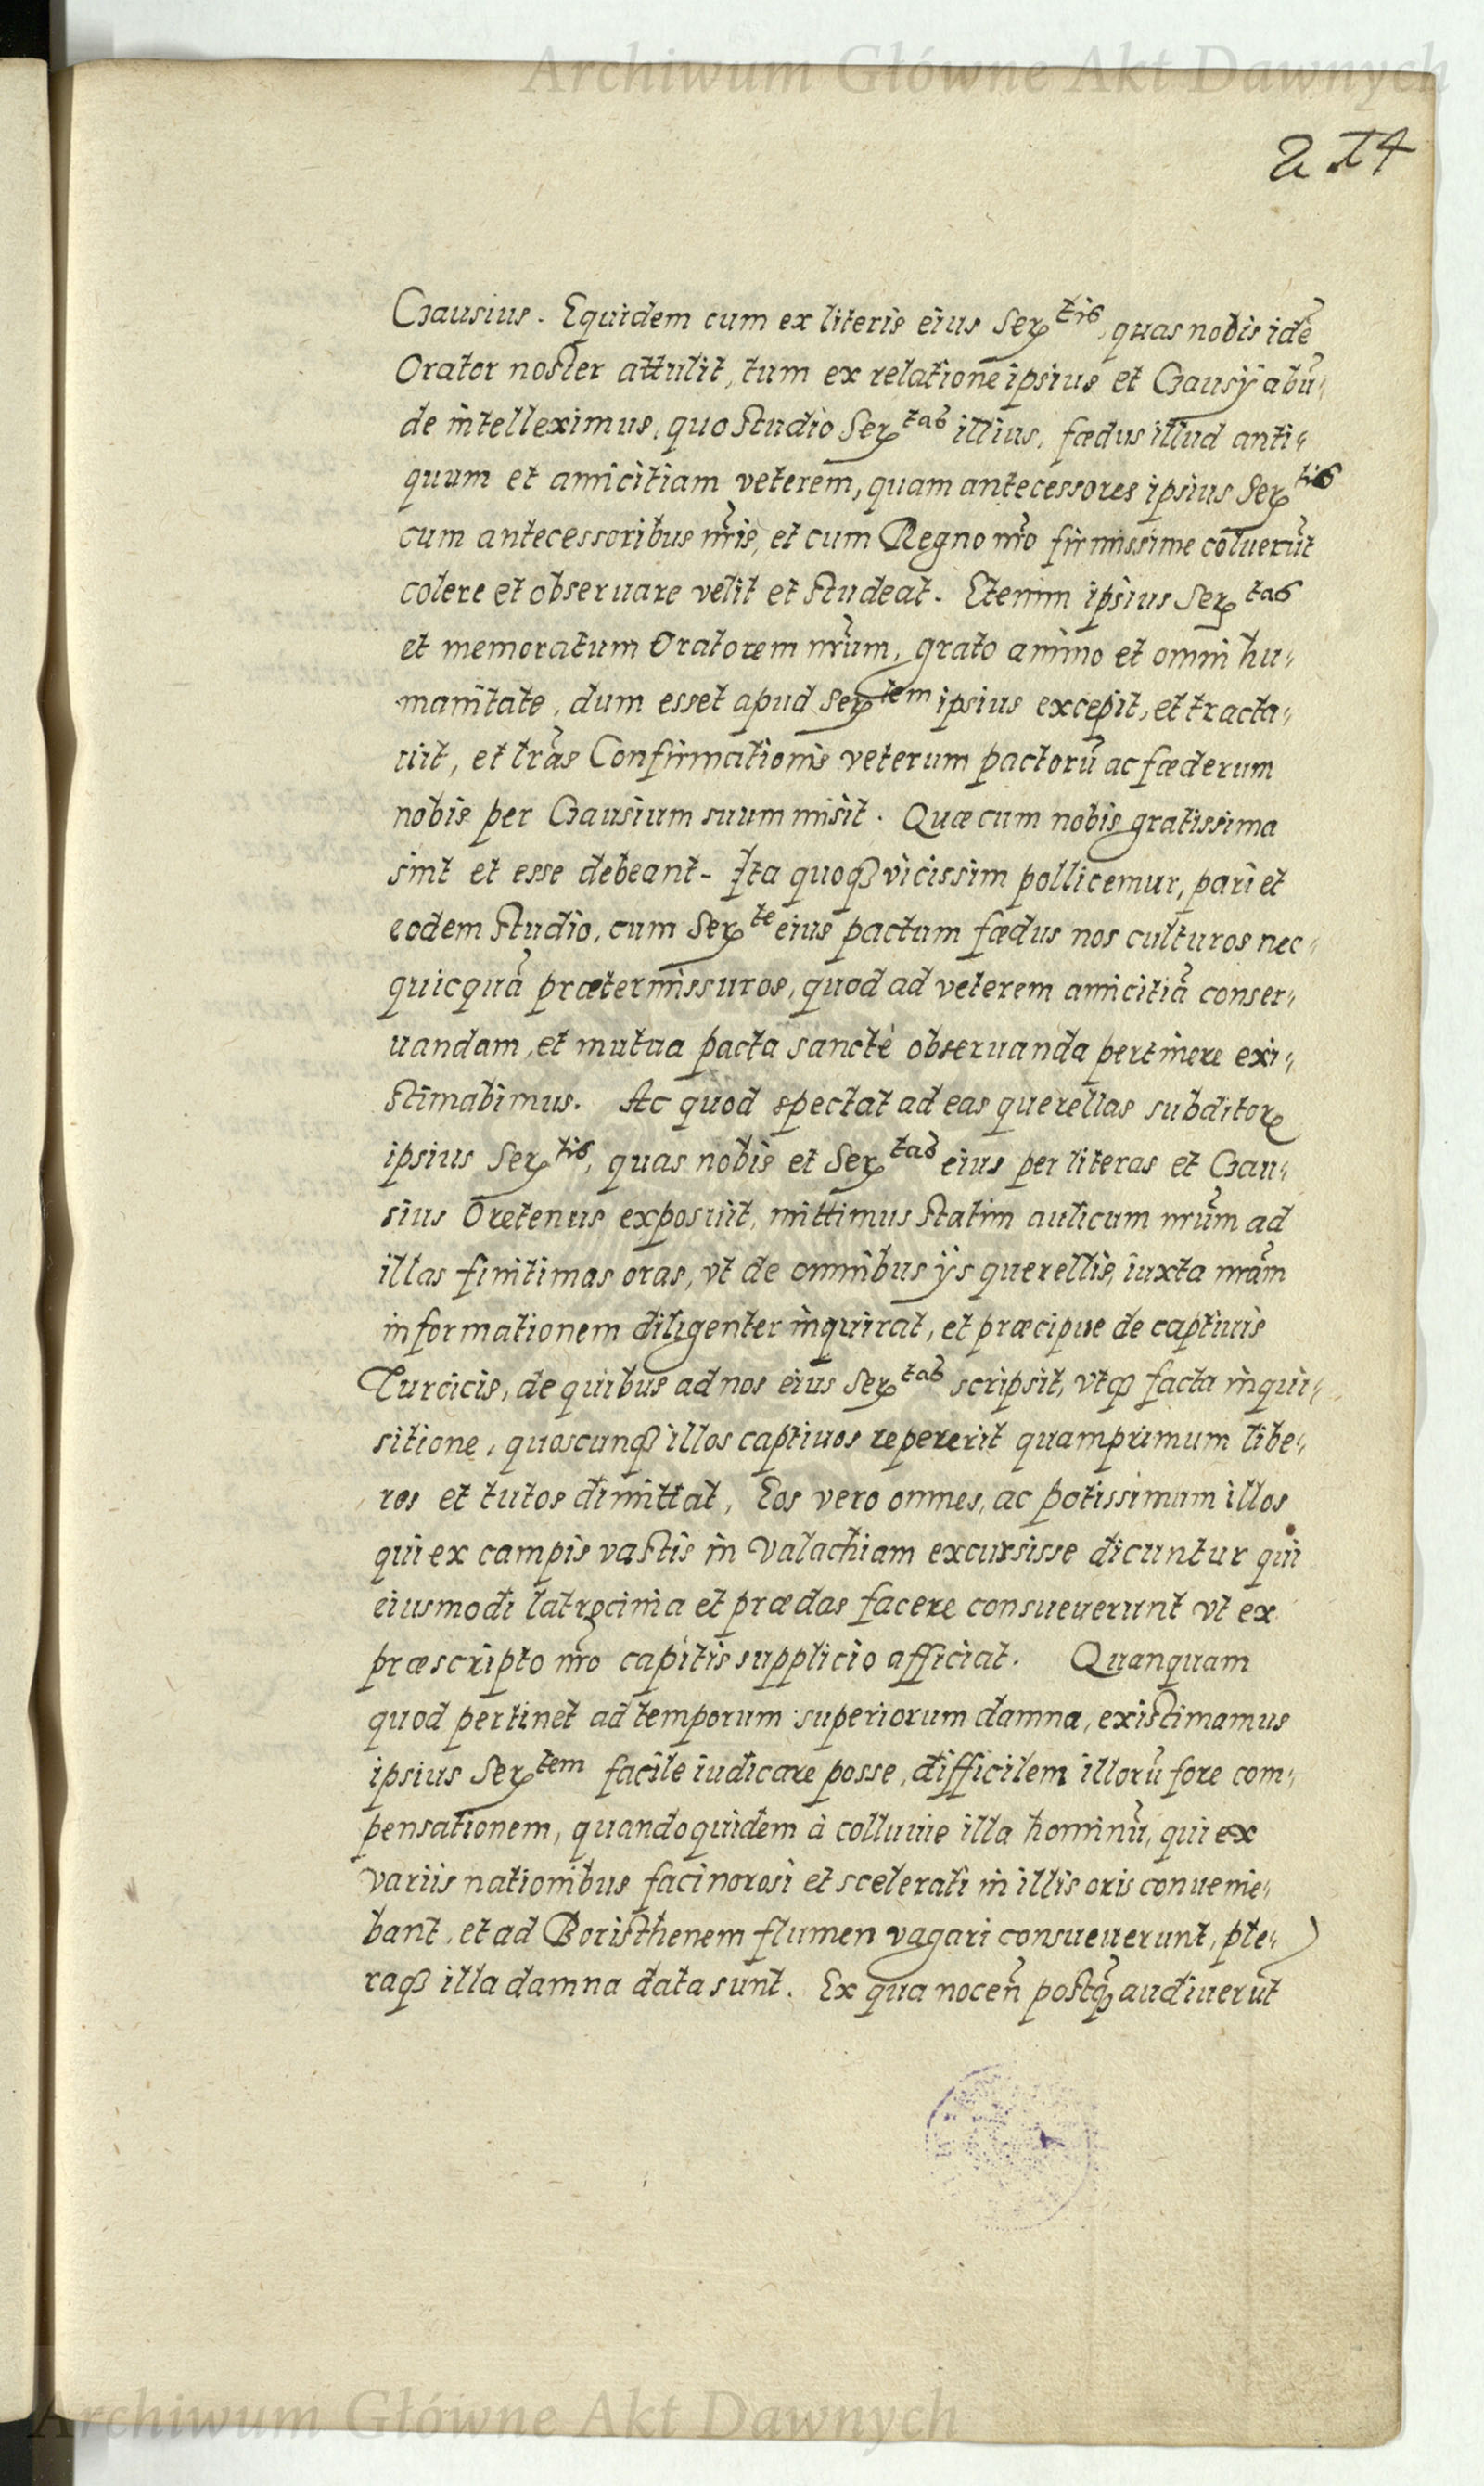 Archiwum Główne Akt Dawnych
214
Czausius. Equidem cum ex literis eius Ser^tis, quas nobis idẽ
Orator noster attulit, tum ex relatione ipsius et Czausÿ abũ,,
de intelleximus, quo studio Ser^tas illius, fœdus illud anti,,
quum et amicitiam veterem, quam antecessores ipsius Ser^tis
cum antecessoribus nr̃is, et cum Regno nr̃o firmissime coluerũt
colere et obseruare velit et studeat. Etenim ipsius Ser^tas
et memoratum Oratorem nr̃um, grato animo et omni hu,,
manitate, dum esset apud Ser^tem ipsius excepit, et tracta,,
uit, et lr̃as Confirmationis veterum pactorũ ac fœderum
nobis per Czausium suum misit. Quæ cum nobis gratissima
sint et esse debeant. Ita quoqꝫ vicissim pollicemur, pari et
eodem studio, cum Ser^te eius pactum fœdus nos culturos nec,,
quicquã prætermissuros, quod ad veterem amicitiã conser,,
uandam, et mutua pacta sanctè obseruanda pertinere exi,,
stimabimus. Ac quod spectat ad eas querellas subditorꝝ
ipsius Ser^tis, quas nobis et Ser^tas eius per literas et Czau,,
sius Oretenus exposuit, mittimus statim aulicum nr̃um ad
illas finitimas oras, vt de omnibus ÿs querellis, iuxta nr̃am
informationem diligenter inquirat, et præcipue de captiuis
Turcicis, de quibus ad nos eius Ser^tas scripsit, vtqꝫ facta inqui,,
sitione, quoscunqꝫ illos captiuos repererit quamprimum libe,,
ros et tutos dimittat, Eos vero omnes, ac potissimum illos
qui ex campis vastis in Valachiam excursisse dicuntur qui
eiusmodi latrocinia et prædas facere consueuerunt vt ex
præscripto nr̃o capitis supplicio afficiat. Quanquam
quod pertinet ad temporum superiorum damna, existimamus
ipsius Ser^tem facile iudicare posse, difficilem illorũ fore com,,
pensationem, quandoquidem à colluuie illa hominũ, qui ex
variis nationibus facinorosi et scelerati in illis oris conuenie,,
bant, et ad Boristhenem flumen vagari consueuerunt, ple,,
raqꝫ illa damna data sunt. Ex qua nocen̄ postqꝫ̃ audiuerũt
Archiwum Główne Akt Dawnych